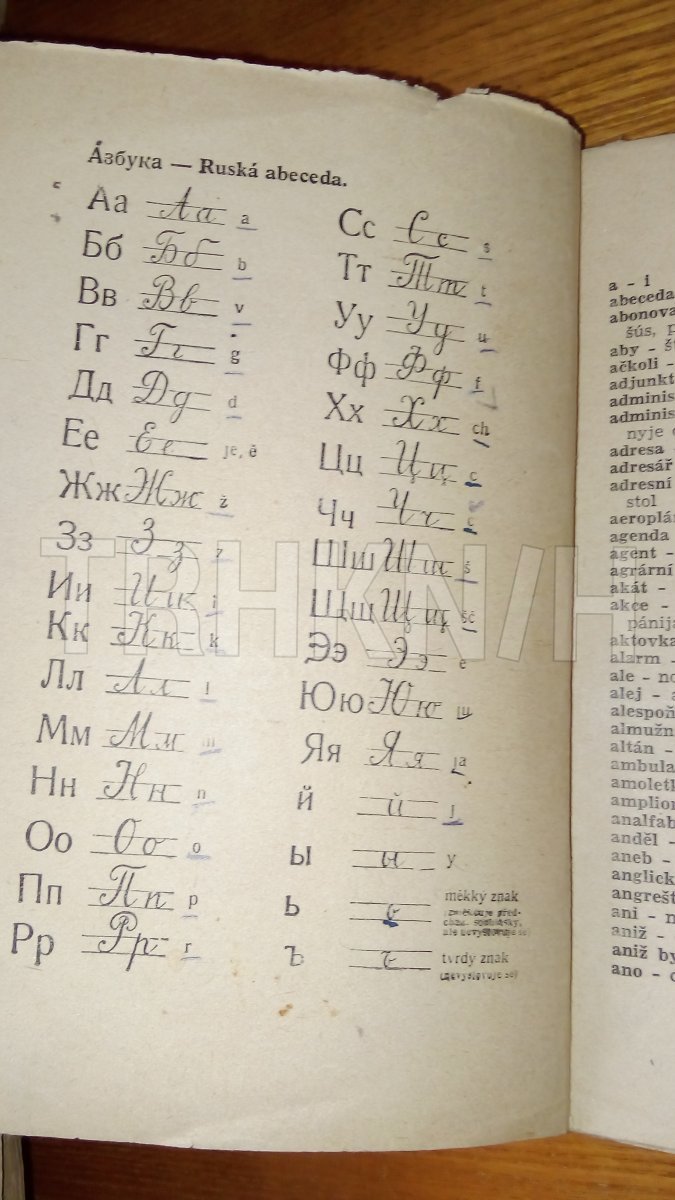 Áзбука — Ruská abeceda.
Аа Аа a
Бб Бб b
Вв Вв v
Гг Гг g
Дд Дд d
Ее Ее je, ě
Жж Жж ž
Зз Зз z
Ии Ии i
Кк Кк k
Лл Лл l
Мм Мм m
Нн Нн n
Оо Оо o
Пп Пп p
Рр Рр r
Сс Сс s
Тт Тт t
Уу Уу u
Фф Фф f
Хх Хх ch
Цц Цц c
Чч Чч č
Шш Шш š
Щщ Щщ šč
Ээ Ээ e
Юю Юю
Яя Яя ja
й й j
ы ы y
ь ь měkký znak
ale nevyslovuje se)
ъ ъ tvrdy znak
(nevyslovuje se)
a - i
abeceda
abonova
šús, p
aby - š
ačkoli -
adjunkt
adminis
adminis
nyje
adresa
adresář
adresní
stol
aeroplá
agenda
agent -
agrární
akát -
akce -
pánija
aktovka
alarm -
ale - no
alej - a
alespoň
almužn
altán -
ambula
amoletk
amplion
analfab
anděl -
aneb -
anglick
angrešt
ani - n
aniž -
aniž by
ano -
TRHKN/H